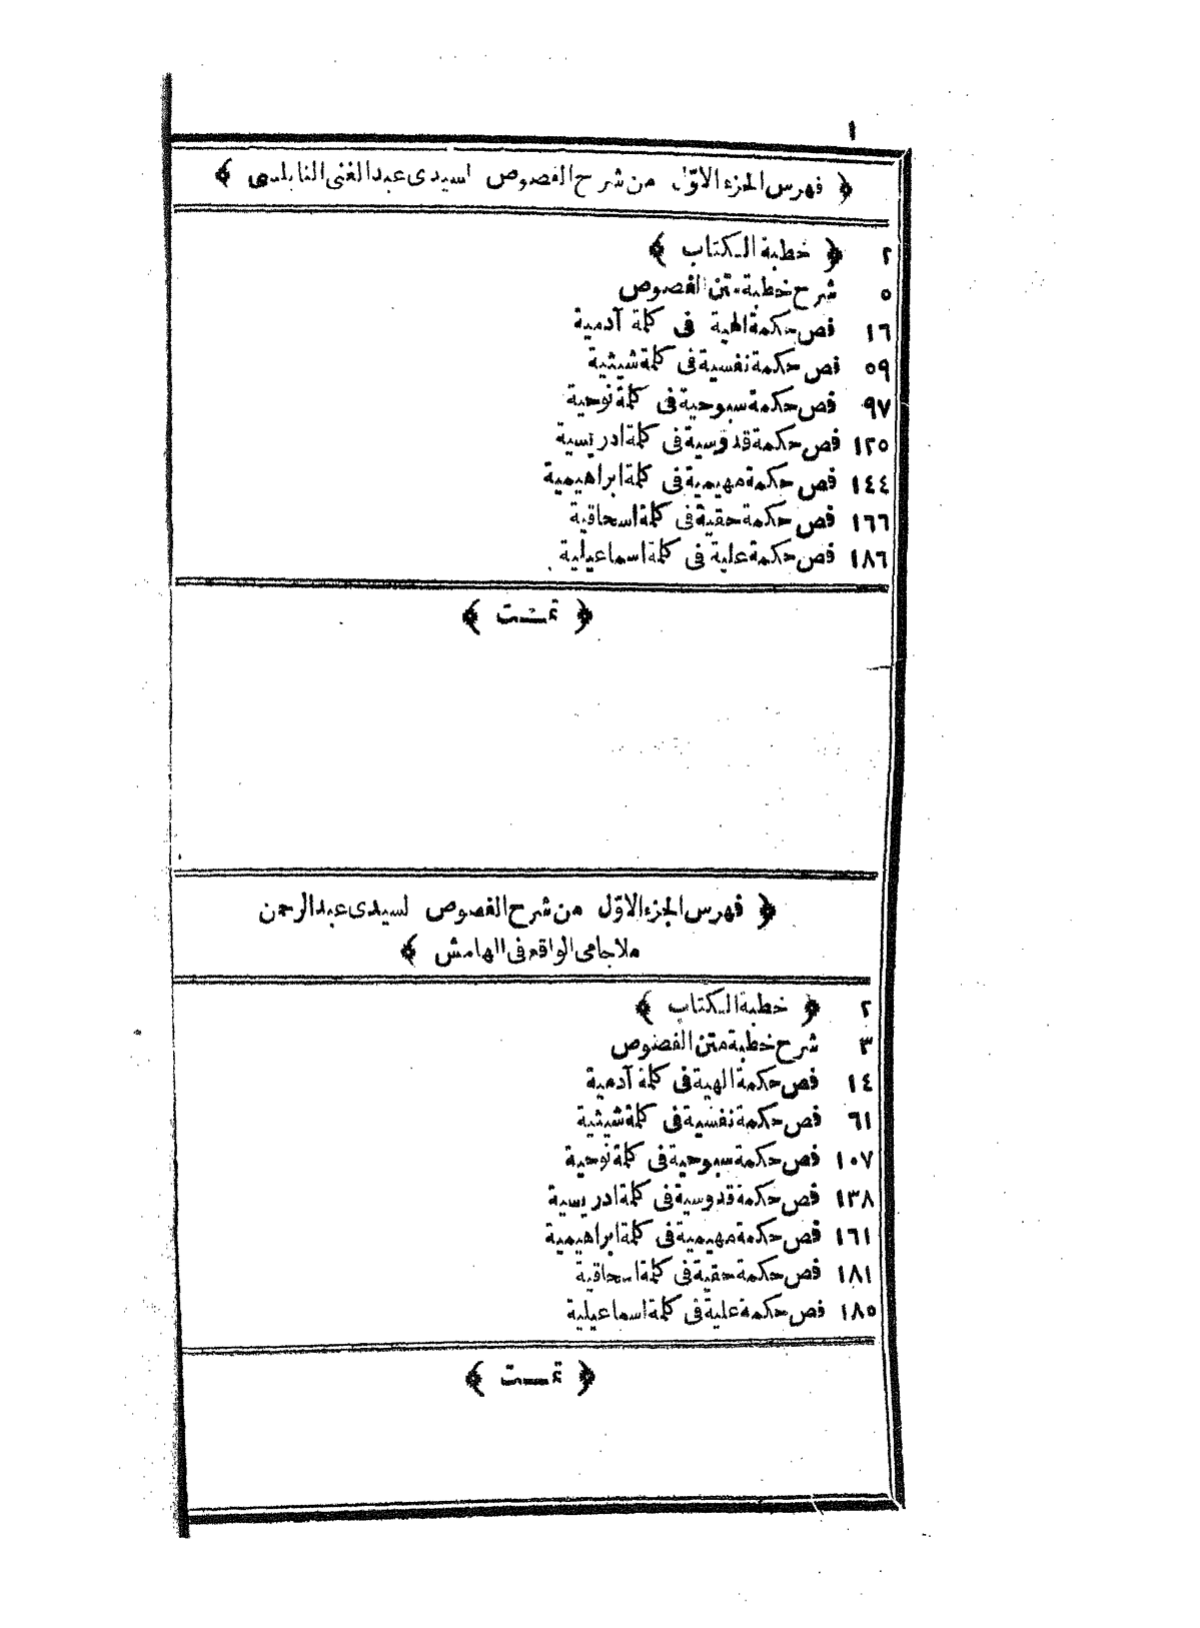 ١
﴿ فهرس الجزء الاوّل من شرح الفصوص لسيدى عبد الغنى النابلسى ﴾
٢ ﴿ خطبة الكتاب ﴾
٥ شرح خطبة متن الفصوص
١٦ فص حكمة الهية فى كلمة آدمية
٥٩ فص حكمة نفسية فى كلمة شيثية
٩٧ فص حكمة سبوحية فى كلمة نوحية
١٢٥ فص حكمة قدوسية فى كلمة ادريسية
١٤٤ فص حكمة مهيمية فى كلمة ابراهيمية
١٦٦ فص حكمة حقية فى كلمة اسحاقية
١٨٦ فص حكمة علية فى كلمة اسماعيلية
﴿ تمــت ﴾
﴿ فهرس الجزء الاوّل من شرح الفصوص لسيدى عبد الرحمن
ملا جامى الواقع فى الهامش ﴾
٢ ﴿ خطبة الكتاب ﴾
٣ شرح خطبة متن الفصوص
١٤ فص حكمة الهية فى كلمة آدمية
٦١ فص حكمة نفسية فى كلمة شيثية
١٠٧ فص حكمة سبوحية فى كلمة نوحية
١٣٨ فص حكمة قدوسية فى كلمة ادريسية
١٦١ فص حكمة مهيمية فى كلمة ابراهيمية
١٨١ فص حكمة حقية فى كلمة اسحاقية
١٨٥ فص حكمة علية فى كلمة اسماعيلية
﴿ تمــت ﴾